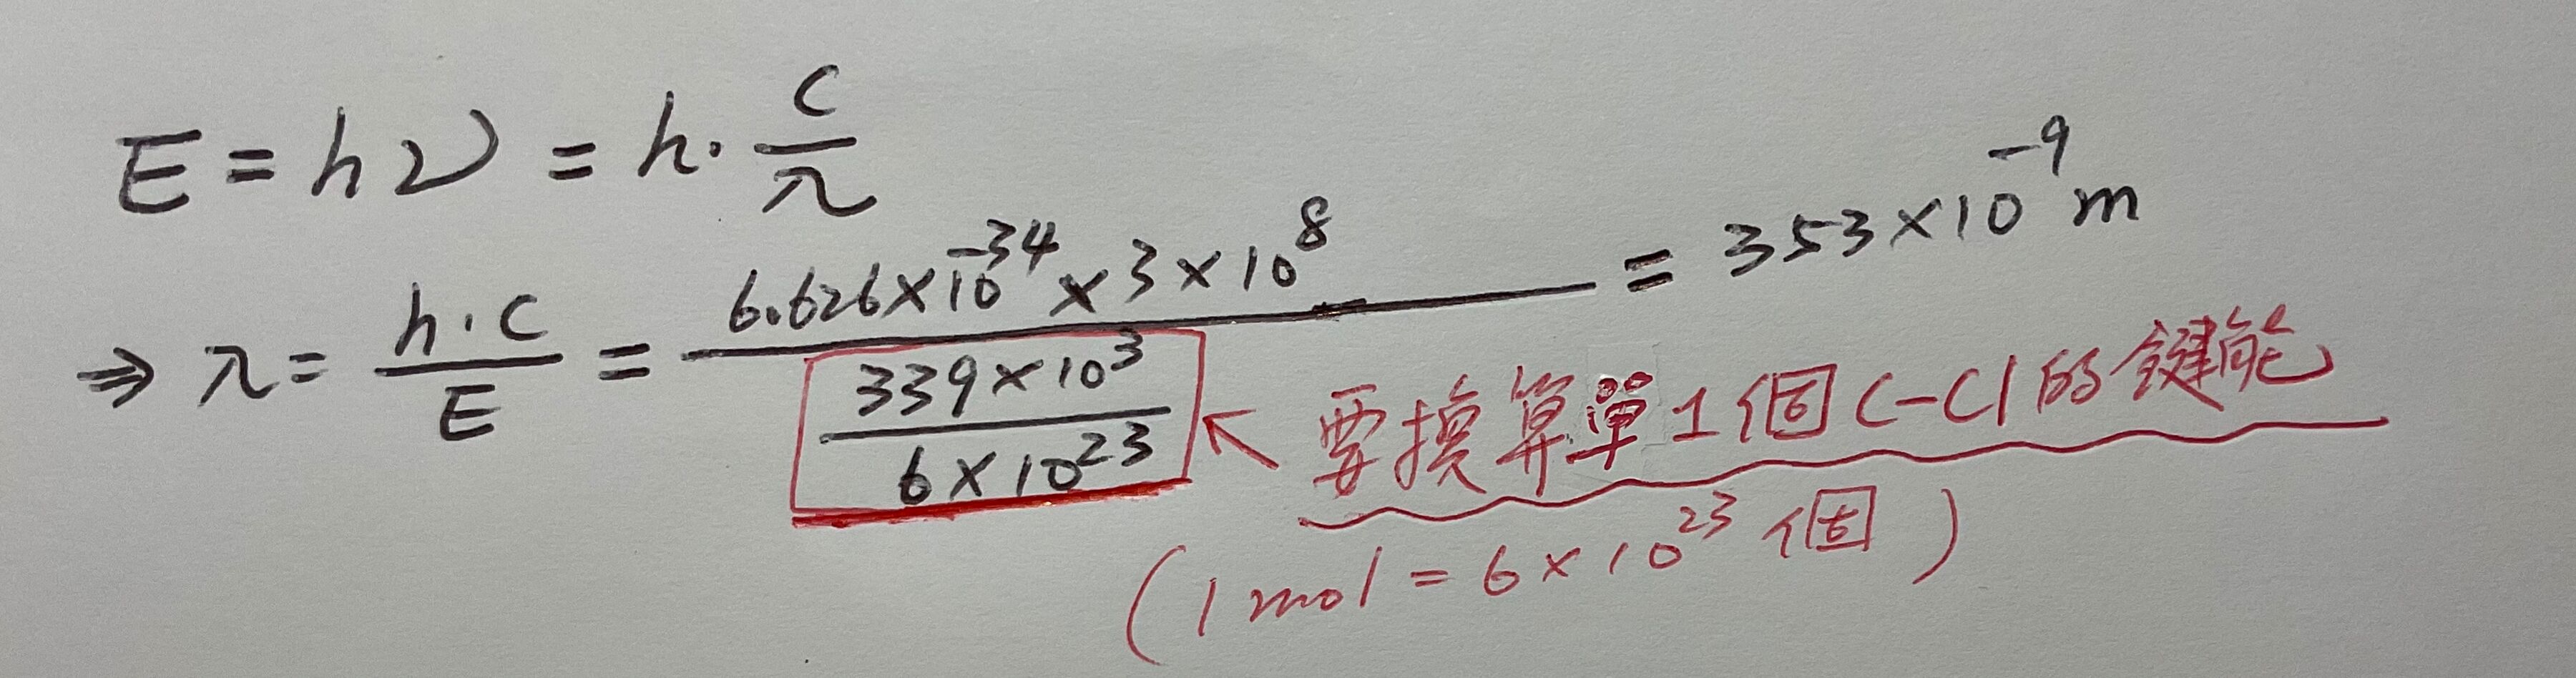 E = hν = h · c/λ
⇒ λ = h·c/E = 6.626×10⁻³⁴ × 3 × 10⁸ / (339×10³ / 6×10²³) = 353×10⁻⁹ m
← 要換算單1個C-Cl的鍵能
(1 mol = 6×10²³ 個)